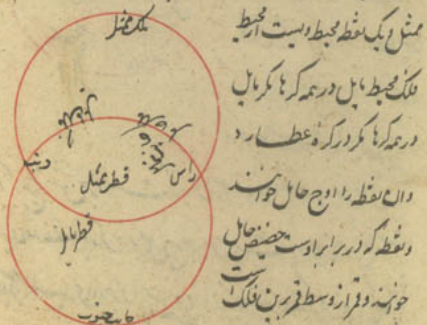 ممثل و یک نقطه محیط ویست از محیط
فلک محیط مایل در همه کرها مکر مایل
در همه کرها مکر در کره عطارد
وان نقطه را اوج حامل خوانند
و نقطه که در برابر اوست حضیض حامل
خوانند و قمر از وسط قمر بن فلک است
فلک ممثل
راس
وذنب
قطر ممثل
قطر مایل
جنوب